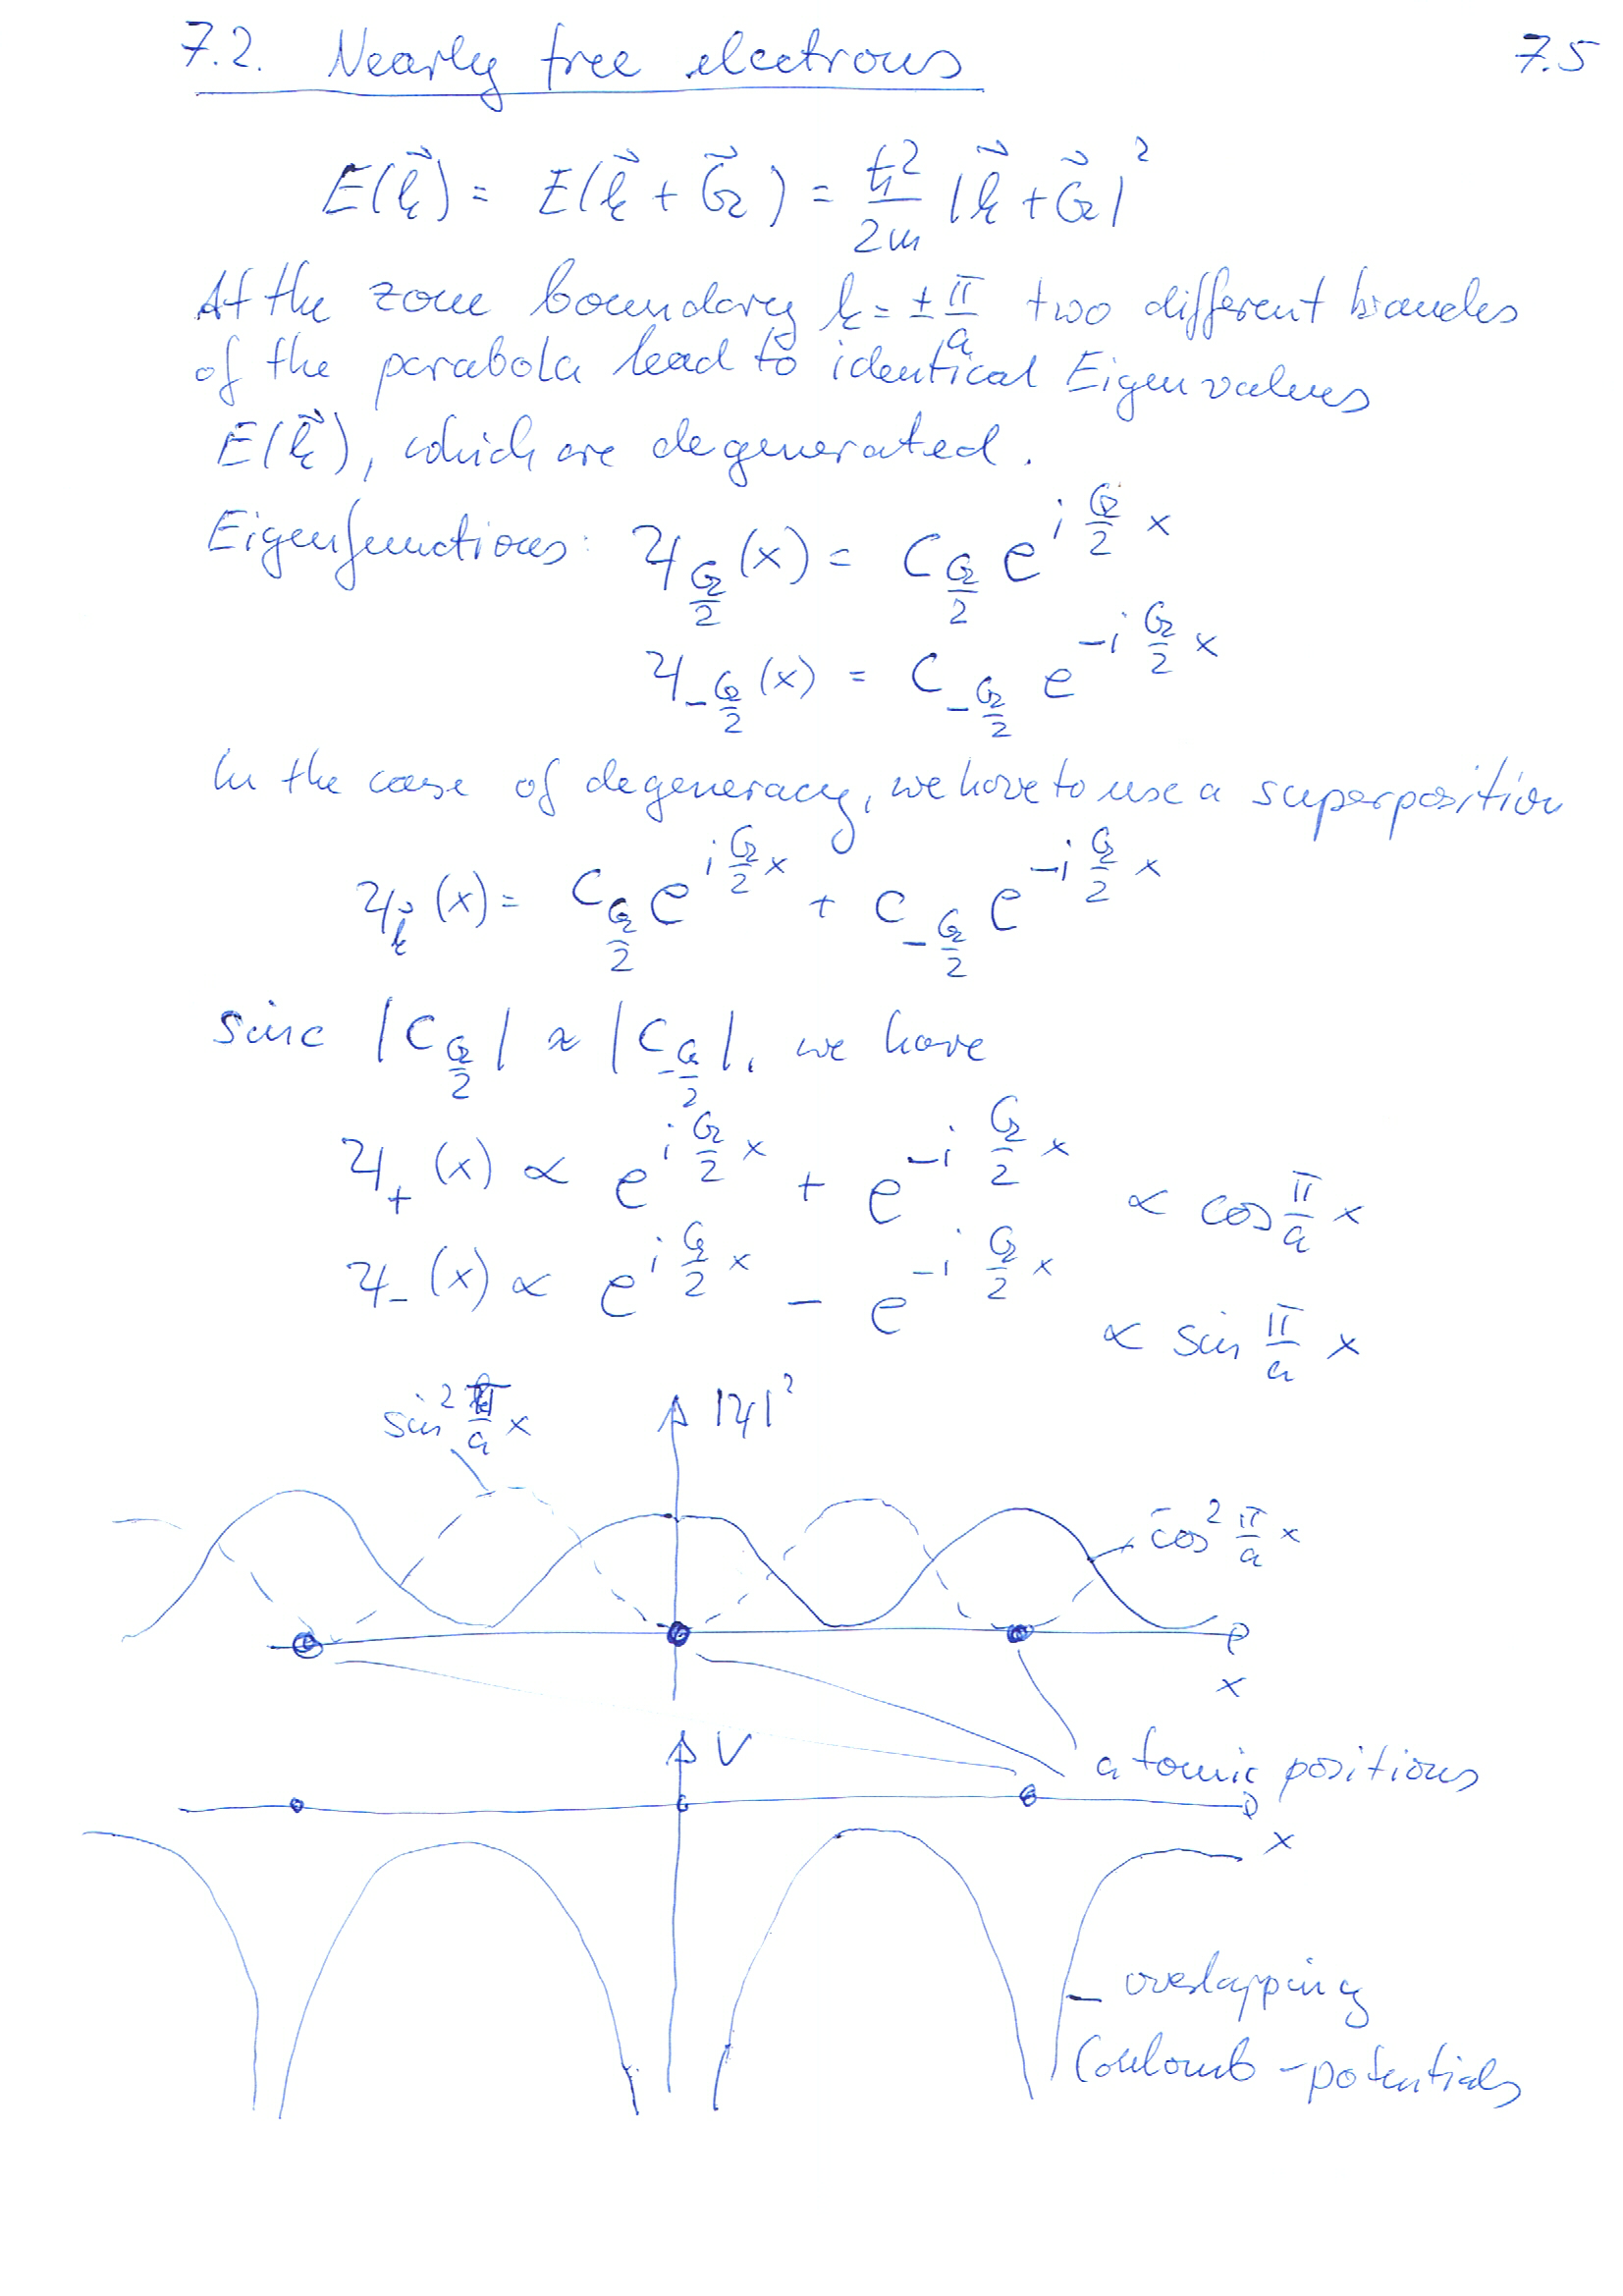 7.2. Nearly free electrons 7.5
E(k⃗) = E(k⃗ + G⃗) = ħ²/2m |k⃗ + G⃗|²
At the zone boundary k = ± π/a two different branches
of the parabola lead to identical Eigenvalues
E(k⃗), which are degenerated.
Eigenfunctions: ψ_{G/2}(x) = C_{G/2} e^{i G/2 x}
ψ_{-G/2}(x) = C_{-G/2} e^{-i G/2 x}
In the case of degeneracy, we have to use a superposition
ψ_{k⃗}(x) = C_{G/2} e^{i G/2 x} + C_{-G/2} e^{-i G/2 x}
Sinc |C_{G/2}| ≈ |C_{-G/2}|, we have
ψ₊(x) ∝ e^{i G/2 x} + e^{-i G/2 x} ∝ cos π/a x
ψ₋(x) ∝ e^{i G/2 x} - e^{-i G/2 x} ∝ sin π/a x
sin² π/a x
|ψ|²
cos² π/a x
x
V
atomic positions
x
overlapping
Coulomb-potentials